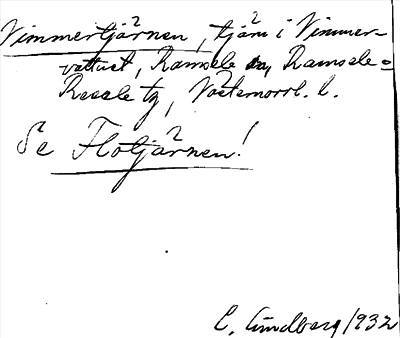 Vimmertjärnen, tjärn i Vimmer-
vattnet, Ramsele sn, Ramsele =
Resele tg, Västernorrl. l.
Se Flotjärnen!
C. Lundberg 1932